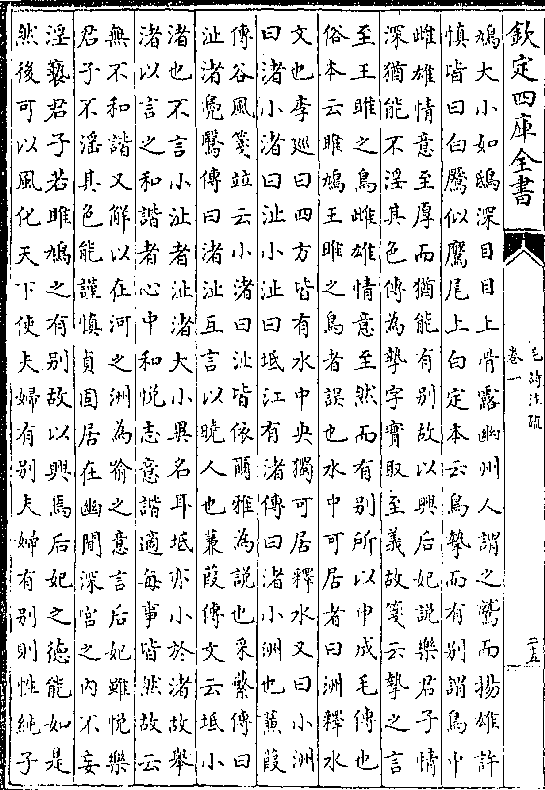 欽定四庫全書
毛詩注疏
卷一
二五
鳩大小如鴟深目目上骨露幽州人謂之鷲而揚雄許
慎皆曰白鷢似鷹尾上白定本云鳥摯而有别謂鳥中
雌雄情意至厚而猶能有别故以興后妃說樂君子情
深猶能不淫其色傳為摯字實取至義故箋云摯之言
至王雎之鳥雌雄情意至然而有别所以申成毛傳也
俗本云雎鳩王雎之鳥者誤也水中可居者曰洲釋水
文也李巡曰四方皆有水中央獨可居釋水又曰小洲
曰渚小渚曰沚小沚曰坻江有渚傳曰渚小洲也蒹葭
傳谷風箋竝云小渚曰沚皆依爾雅為說也采蘩傳曰
沚渚鳧鷖傳曰渚沚互言以曉人也蒹葭傳文云坻小
渚也不言小沚者沚渚大小異名耳坻亦小於渚故舉
渚以言之和諧者心中和悦志意諧適每事皆然故云
無不和諧又解以在河之洲為喻之意言后妃雖悦樂
君子不淫其色能謹慎貞固居在幽閒深宮之内不妄
淫褻君子若雎鳩之有别故以興焉后妃之徳能如是
然後可以風化天下使夫婦有别夫婦有别則性純子